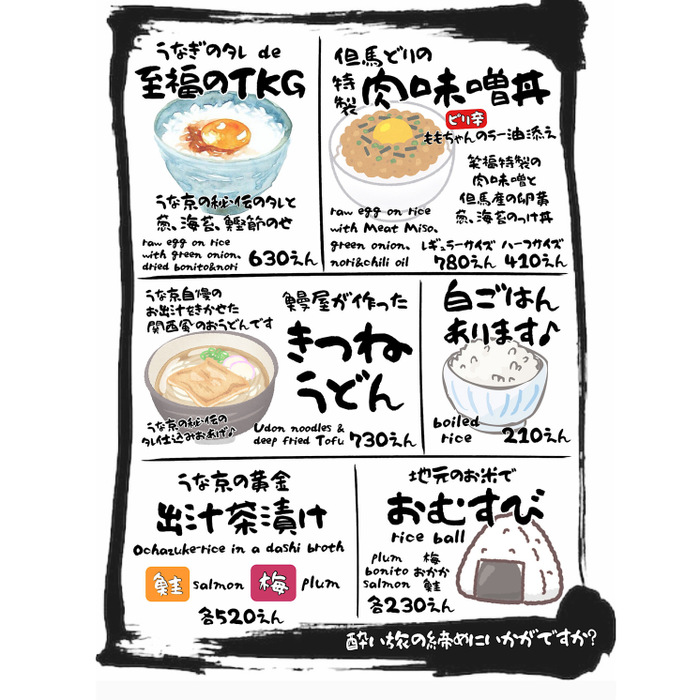 うなぎのタレ de
至福のTKG
うな京の秘伝のタレと
葱、海苔、鰹節のせ
raw egg on rice
with green onion,
dried bonito&nori
630えん
但馬どりの
特製
肉味噌丼
ピリ辛
ももちゃんのラー油添え
笑福特製の
肉味噌と
但馬産の卵黄
葱、海苔のっけ丼
raw egg on rice
with Meat Miso,
green onion,
nori&chili oil
レギュラーサイズ ハーフサイズ
780えん 410えん
うな京自慢の
お出汁をきかせた
関西風のおうどんです
鰻屋が作った
きつね
うどん
うな京の秘伝の
タレ仕込みおあげ♪
Udon noodles &
deep fried Tofu
730えん
白ごはん
あります♪
boiled
rice
210えん
うな京の黄金
出汁茶漬け
Ochazuke-rice in a dashi broth
鮭 salmon 梅 plum
各520えん
地元のお米で
おむすび
rice ball
plum 梅
bonito おかか
salmon 鮭
各230えん
酔い旅の締めにいかがですか?